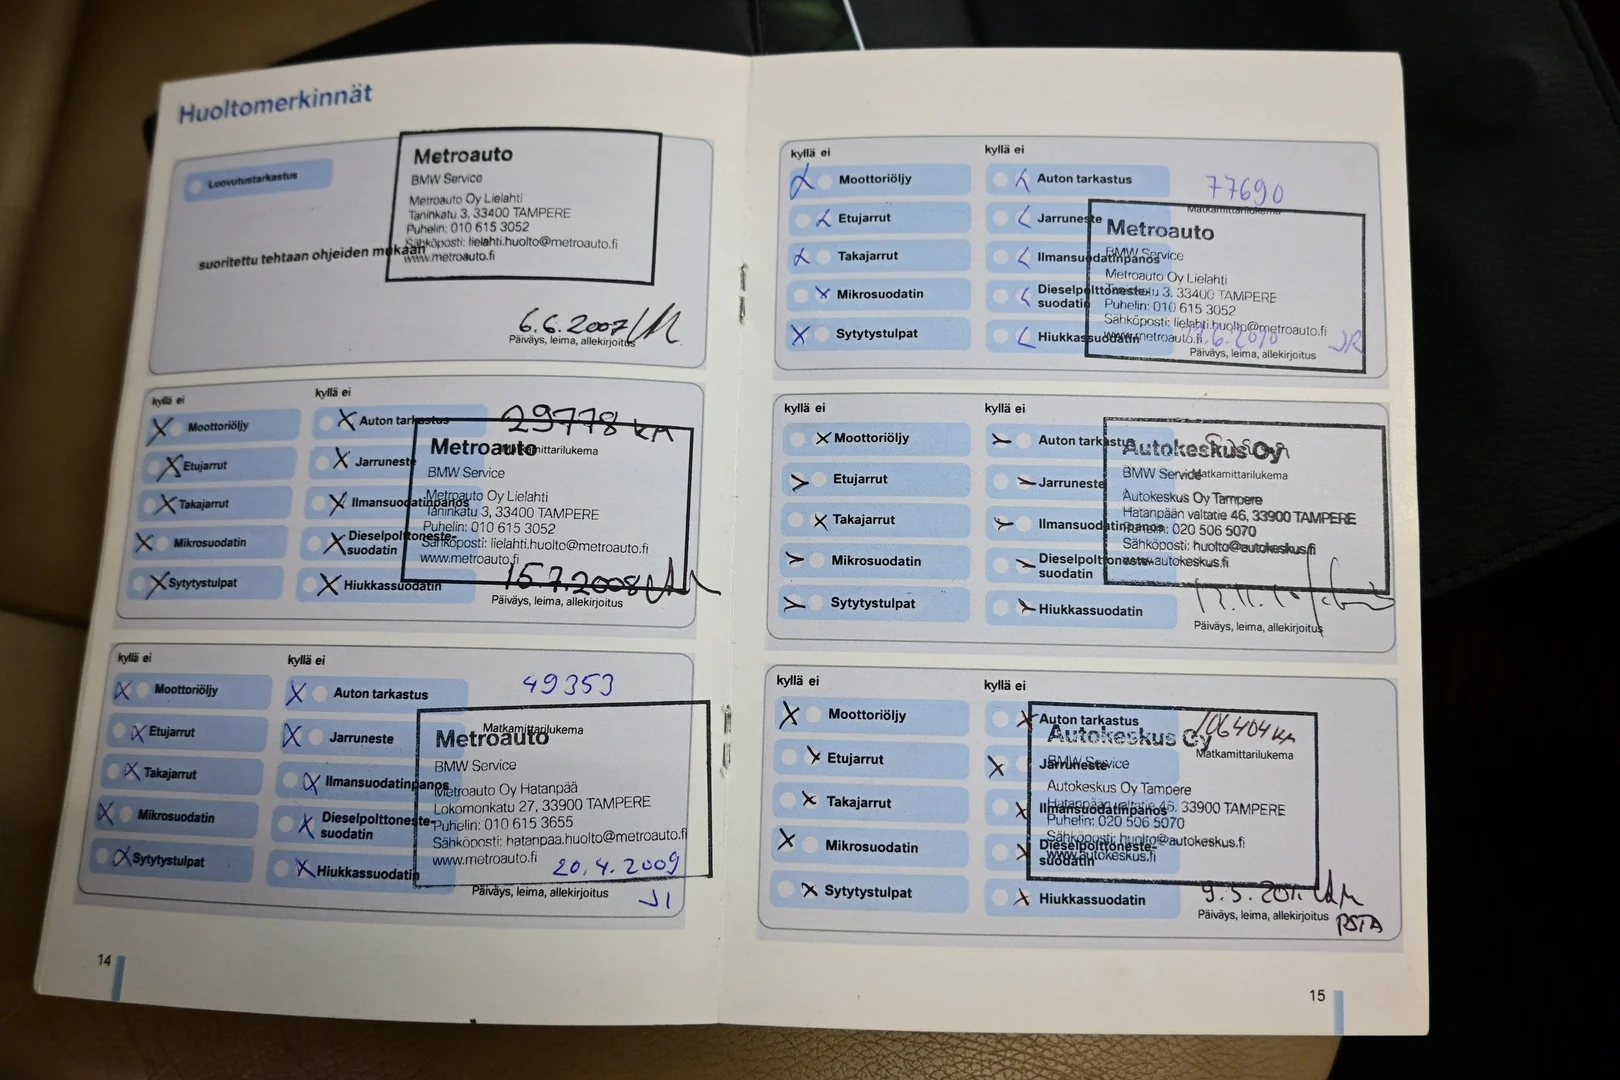 Huoltomerkinnät
Luovutustarkastus
suoritettu tehtaan ohjeiden mukaan
Metroauto
BMW Service
Metroauto Oy Lielahti
Taninkatu 3, 33400 TAMPERE
Puhelin: 010 615 3052
Sähköposti: lielahti.huolto@metroauto.fi
www.metroauto.fi
6.6.2007
Päiväys, leima, allekirjoitus
kyllä ei
kyllä ei
Moottoriöljy
Etujarrut
Takajarrut
Mikrosuodatin
Sytytystulpat
Auton tarkastus
Jarruneste
Ilmansuodatinpanos
Dieselpolttoneste-
suodatin
Hiukkassuodatin
29778 km
Matkamittarilukema
Metroauto
BMW Service
Metroauto Oy Lielahti
Taninkatu 3, 33400 TAMPERE
Puhelin: 010 615 3052
Sähköposti: lielahti.huolto@metroauto.fi
www.metroauto.fi
15.7.2008
Päiväys, leima, allekirjoitus
kyllä ei
kyllä ei
Moottoriöljy
Etujarrut
Takajarrut
Mikrosuodatin
Sytytystulpat
Auton tarkastus
Jarruneste
Ilmansuodatinpanos
Dieselpolttoneste-
suodatin
Hiukkassuodatin
49353
Matkamittarilukema
Metroauto
BMW Service
Metroauto Oy Hatanpää
Lokomonkatu 27, 33900 TAMPERE
Puhelin: 010 615 3655
Sähköposti: hatanpaa.huolto@metroauto.fi
www.metroauto.fi
20.4.2009
Päiväys, leima, allekirjoitus
14
kyllä ei
kyllä ei
Moottoriöljy
Etujarrut
Takajarrut
Mikrosuodatin
Sytytystulpat
Auton tarkastus
Jarruneste
Ilmansuodatinpanos
Dieselpolttoneste-
suodatin
Hiukkassuodatin
77690
Matkamittarilukema
Metroauto
BMW Service
Metroauto Oy Lielahti
Taninkatu 3, 33400 TAMPERE
Puhelin: 010 615 3052
Sähköposti: lielahti.huolto@metroauto.fi
www.metroauto.fi
JR
Päiväys, leima, allekirjoitus
kyllä ei
kyllä ei
Moottoriöljy
Etujarrut
Takajarrut
Mikrosuodatin
Sytytystulpat
Auton tarkastus
Jarruneste
Ilmansuodatinpanos
Dieselpolttoneste-
suodatin
Hiukkassuodatin
Matkamittarilukema
Autokeskus Oy
BMW Service
Autokeskus Oy Tampere
Hatanpään valtatie 46, 33900 TAMPERE
Puhelin: 020 506 5070
Sähköposti: huolto@autokeskus.fi
www.autokeskus.fi
Päiväys, leima, allekirjoitus
kyllä ei
kyllä ei
Moottoriöljy
Etujarrut
Takajarrut
Mikrosuodatin
Sytytystulpat
Auton tarkastus
Jarruneste
Ilmansuodatinpanos
Dieselpolttoneste-
suodatin
Hiukkassuodatin
106404 km
Matkamittarilukema
Autokeskus Oy
BMW Service
Autokeskus Oy Tampere
Hatanpään valtatie 46, 33900 TAMPERE
Puhelin: 020 506 5070
Sähköposti: huolto@autokeskus.fi
www.autokeskus.fi
9.5.2011
Päiväys, leima, allekirjoitus
15